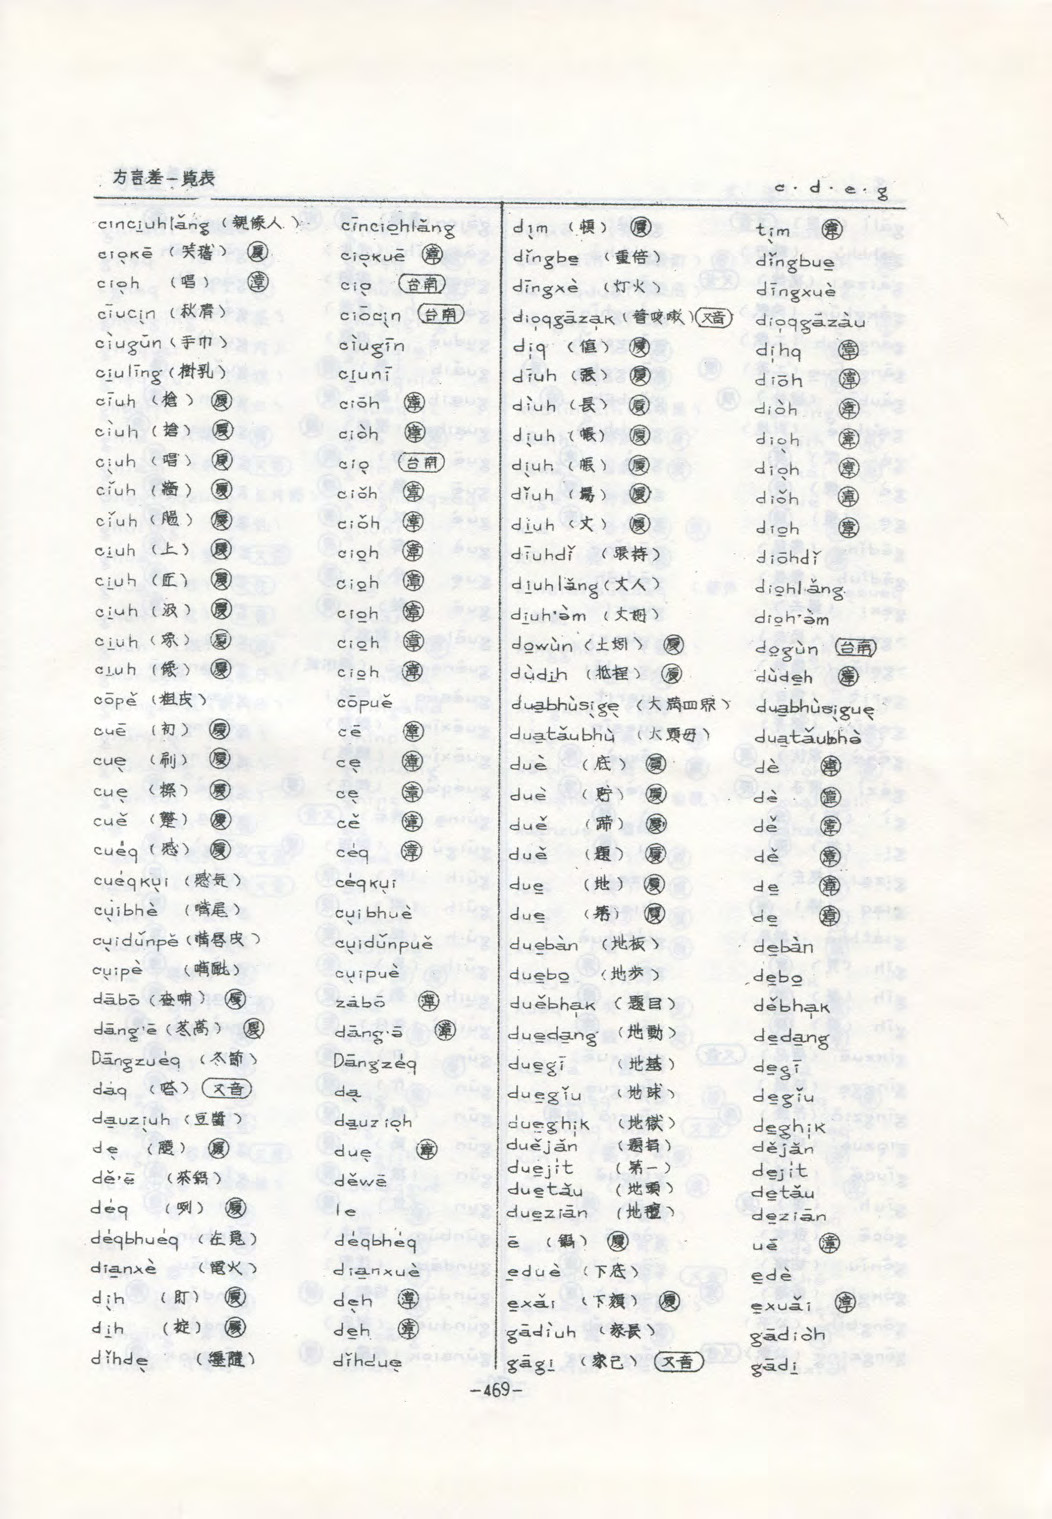 方言差一覧表
c．d．e．g
ci̱nci̱uhlǎng（親像人） cīnciohlǎng
cio̱kē（笑稽）厦 cio̱kuē 漳
cioh（唱）漳 cio̱ 台南
cīucin（秋清） ciōcin 台南
ciùgūn（手巾） ciùgīn
ci̱ulīng（樹乳） ci̱unī
cīuh（槍）厦 ciōh 漳
cìuh（搶）厦 ciòh 漳
ci̩uh（唱）厦 cio̩ 台南
cǐuh 厦 ciǒh 漳
cǐuh 厦 ciǒh 漳
ci̱uh（上）厦 cio̱h 漳
ci̱uh（匠）厦 cio̱h 漳
ci̱uh 厦 cio̱h 漳
ci̱uh（象）厦 cio̱h 漳
ci̱uh（像）厦 cio̱h 漳
cōpě（粗皮） cōpuě
cuē（初）厦 cē 漳
cue̩（刷）厦 ce̩ 漳
cue̩（擦）厦 ce̩ 漳
cuě 厦 cě 漳
cuéq 厦 céq 漳
cuéqku̩i céqku̩i
cu̩ibhè（嘴尾） cu̩ibhuè
cu̩idǔnpě（嘴唇皮） cu̩idǔnpuě
cu̩ipè（嘴𣬈） cu̩ipuè
dābō（查哺）厦 zābō 漳
dāng·ē 厦 dāng·ō 漳
Dāngzuéq（冬節） Dāngzéq
dáq（嗒）又音 da̩
da̱uziuh（豆醬） da̱uzioh
de̩ 厦 due̩ 漳
dě·ē（茶鍋） děwē
déq（咧）厦 le
déqbhuéq déqbhéq
di̱anxè（電火） di̱anxuè
di̩h（盯）厦 de̩h 漳
di̱h（掟）厦 de̱h 漳
dǐhde̩ dǐhdue̩
di̱m 厦 ti̱m 漳
dǐngbe̱（重倍） dǐngbue̱
dīngxè（灯火） dīngxuè
dio̩qgāza̍k 又音 dio̩qgāzāu
di̍q（值）厦 di̍hq 漳
dīuh（張）厦 diōh 漳
dìuh（長）厦 diòh 漳
di̩uh（帳）厦 dio̩h 漳
di̩uh（脹）厦 dio̩h 漳
dǐuh（場）厦 diǒh 漳
di̱uh（丈）厦 dio̱h 漳
dīuhdǐ（張持） diōhdǐ
di̱uhlǎng（丈人） dio̱hlǎng
di̱uh·èm（丈姆） dio̱h·èm
do̱wùn 厦 do̱gùn 台南
dù̩di̱h（抵捏）厦 dùde̱h 漳
du̱abhùsi̩ge（大滿四界） du̱abhùsi̩gue̩
du̱atǎubhù（大頭母） du̱atǎubhè
duè（底）厦 dè 漳
duè（貯）厦 dè 漳
duě（蹄）厦 dě 漳
duě（題）厦 dě 漳
due̱（地）厦 de̱ 漳
due̱ 厦 de̱ 漳
due̱bàn（地板） de̱bàn
due̱bo̱（地步） de̱bo̱
duěbha̍k（題目） děbha̍k
due̱da̱ng（地動） de̱da̱ng
due̱gī（地基） de̱gī
due̱gǐu（地球） de̱gǐu
due̱ghi̍k（地獄） de̱ghi̍k
duějǎn děján
due̱jít（第一） de̱jít
due̱tǎu（地頭） de̱tǎu
due̱ziān de̱ziān
ē（鍋）厦 uē 漳
e̱duè（下底） e̱dè
e̱xǎi（下頦）厦 e̱xuǎi 漳
gādiùh（家長） gādiòh
gāgi̱（家己）又音 gādi̱
-469-